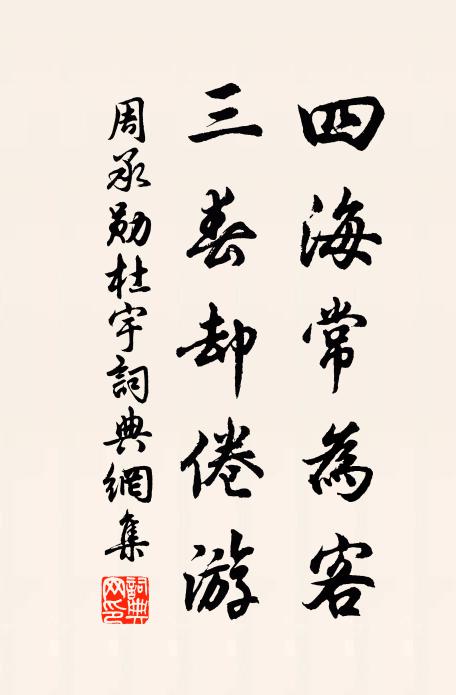 四海常為客
三春却倦游
周承勛杜宇詞典網集
詞典
网印